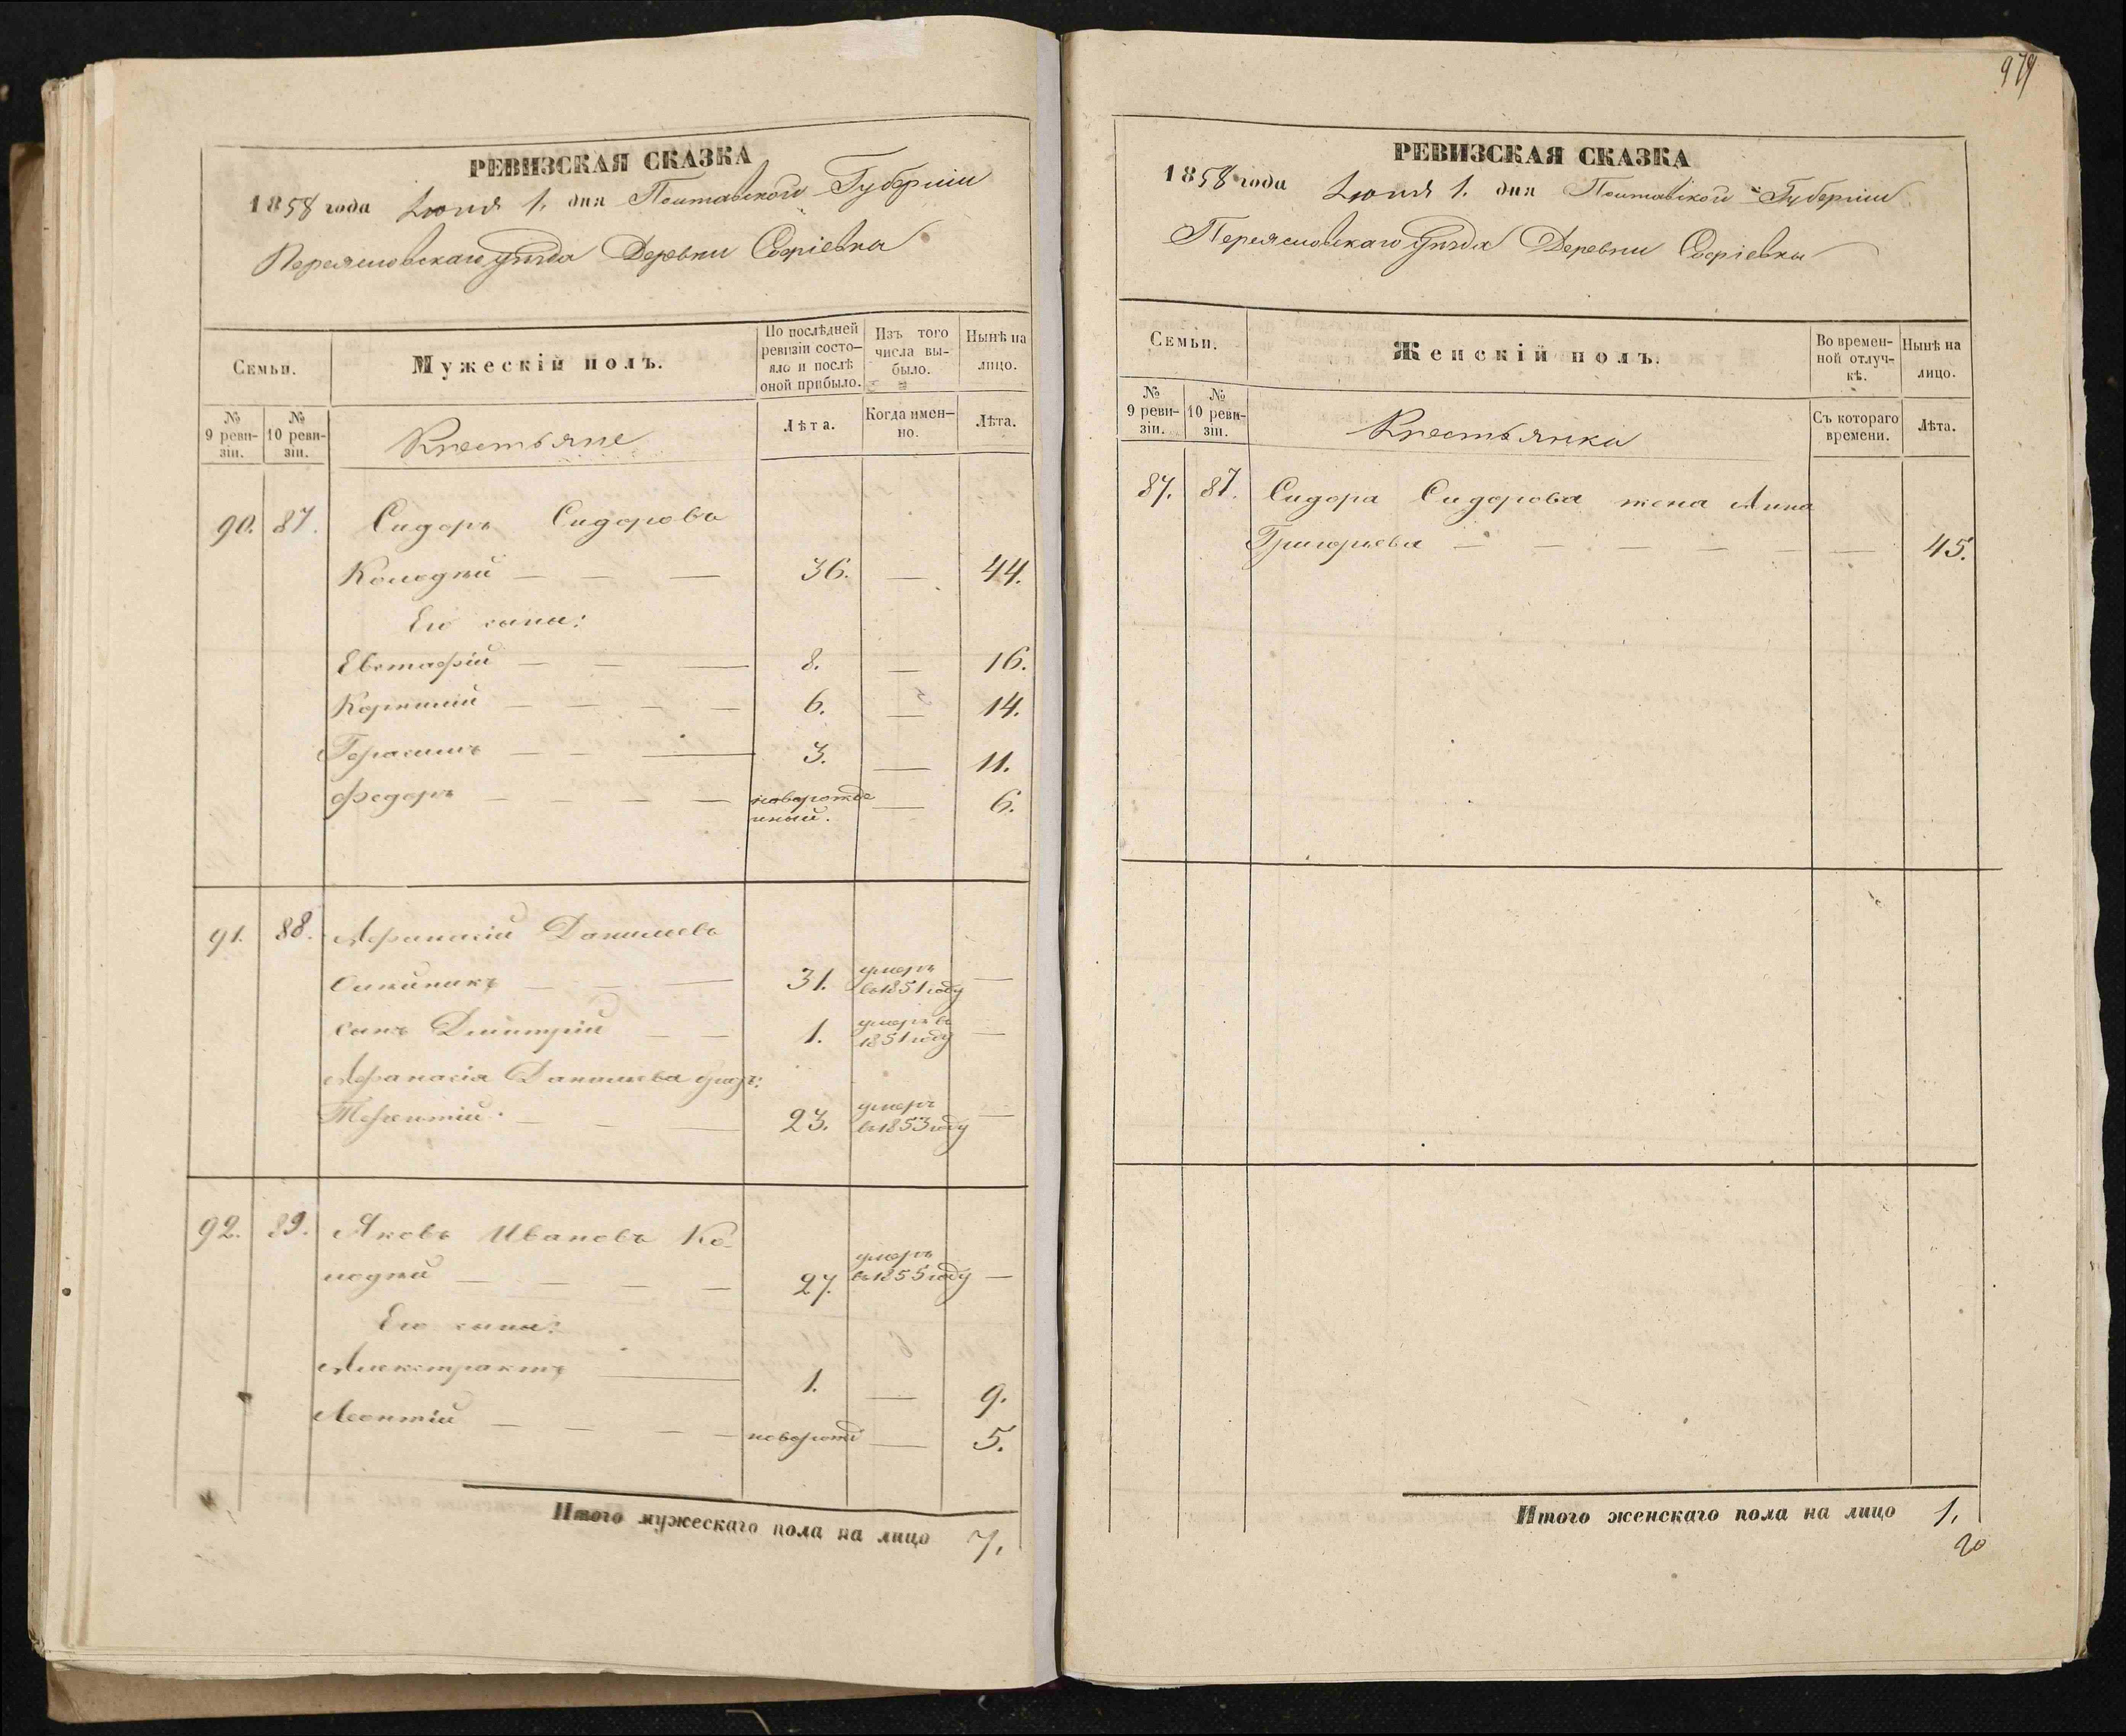 979
РЕВИЗСКАЯ СКАЗКА
1858 года Іюня 1. дня Полтавской Губерніи
Переясловскаго Уѣзда Деревни Софіевки
Семьи.
Мужескій полъ.
По послѣдней ревизіи состо-
яло и послѣ оной прибыло.
Изъ того числа вы-
было.
Нынѣ на лицо.
№ 9 реви-
зіи.
№ 10 реви-
зіи.
Крестьяне
Лѣта.
Когда имен-
но.
Лѣта.
90. 87. Сидоръ Сидоровъ
Колодѣй — — — 36. — 44.
Его сыны:
Евстафій — — — 8. — 16.
Корнилій — — — — 6. — 14.
Герасимъ — — — 3. — 11.
Федоръ — — — — новорожде
нный. — 6.
91. 88. Афанасій Даниловъ
31. умеръ
въ 1851 году —
сынъ Дмитрій — — 1. умеръ въ
1851 году —
Афанасія Данилова
Терентій — — — 23. умеръ
въ 1853 году —
92. 89. Яковъ Ивановъ Ко-
лодѣй — — — — 27. умеръ
въ 1855 году —
Его сыны:
— 1. — 9.
Леонтій — — — — поворожд — 5.
Итого мужескаго пола на лицо 7.
РЕВИЗСКАЯ СКАЗКА
1858 года Іюня 1. дня Полтавской Губерніи
Переясловскаго Уѣзда Деревни Софіевки
Семьи.
Женскій полъ.
Во времен-
ной отлуч-
кѣ.
Нынѣ на лицо.
№ 9 реви-
зіи.
№ 10 реви-
зіи.
Крестьянка
Съ котораго времени.
Лѣта.
87. 87. Сидора Сидорова жена Анна
Григорьева — — — — — — 45.
Итого женскаго пола на лицо 1.